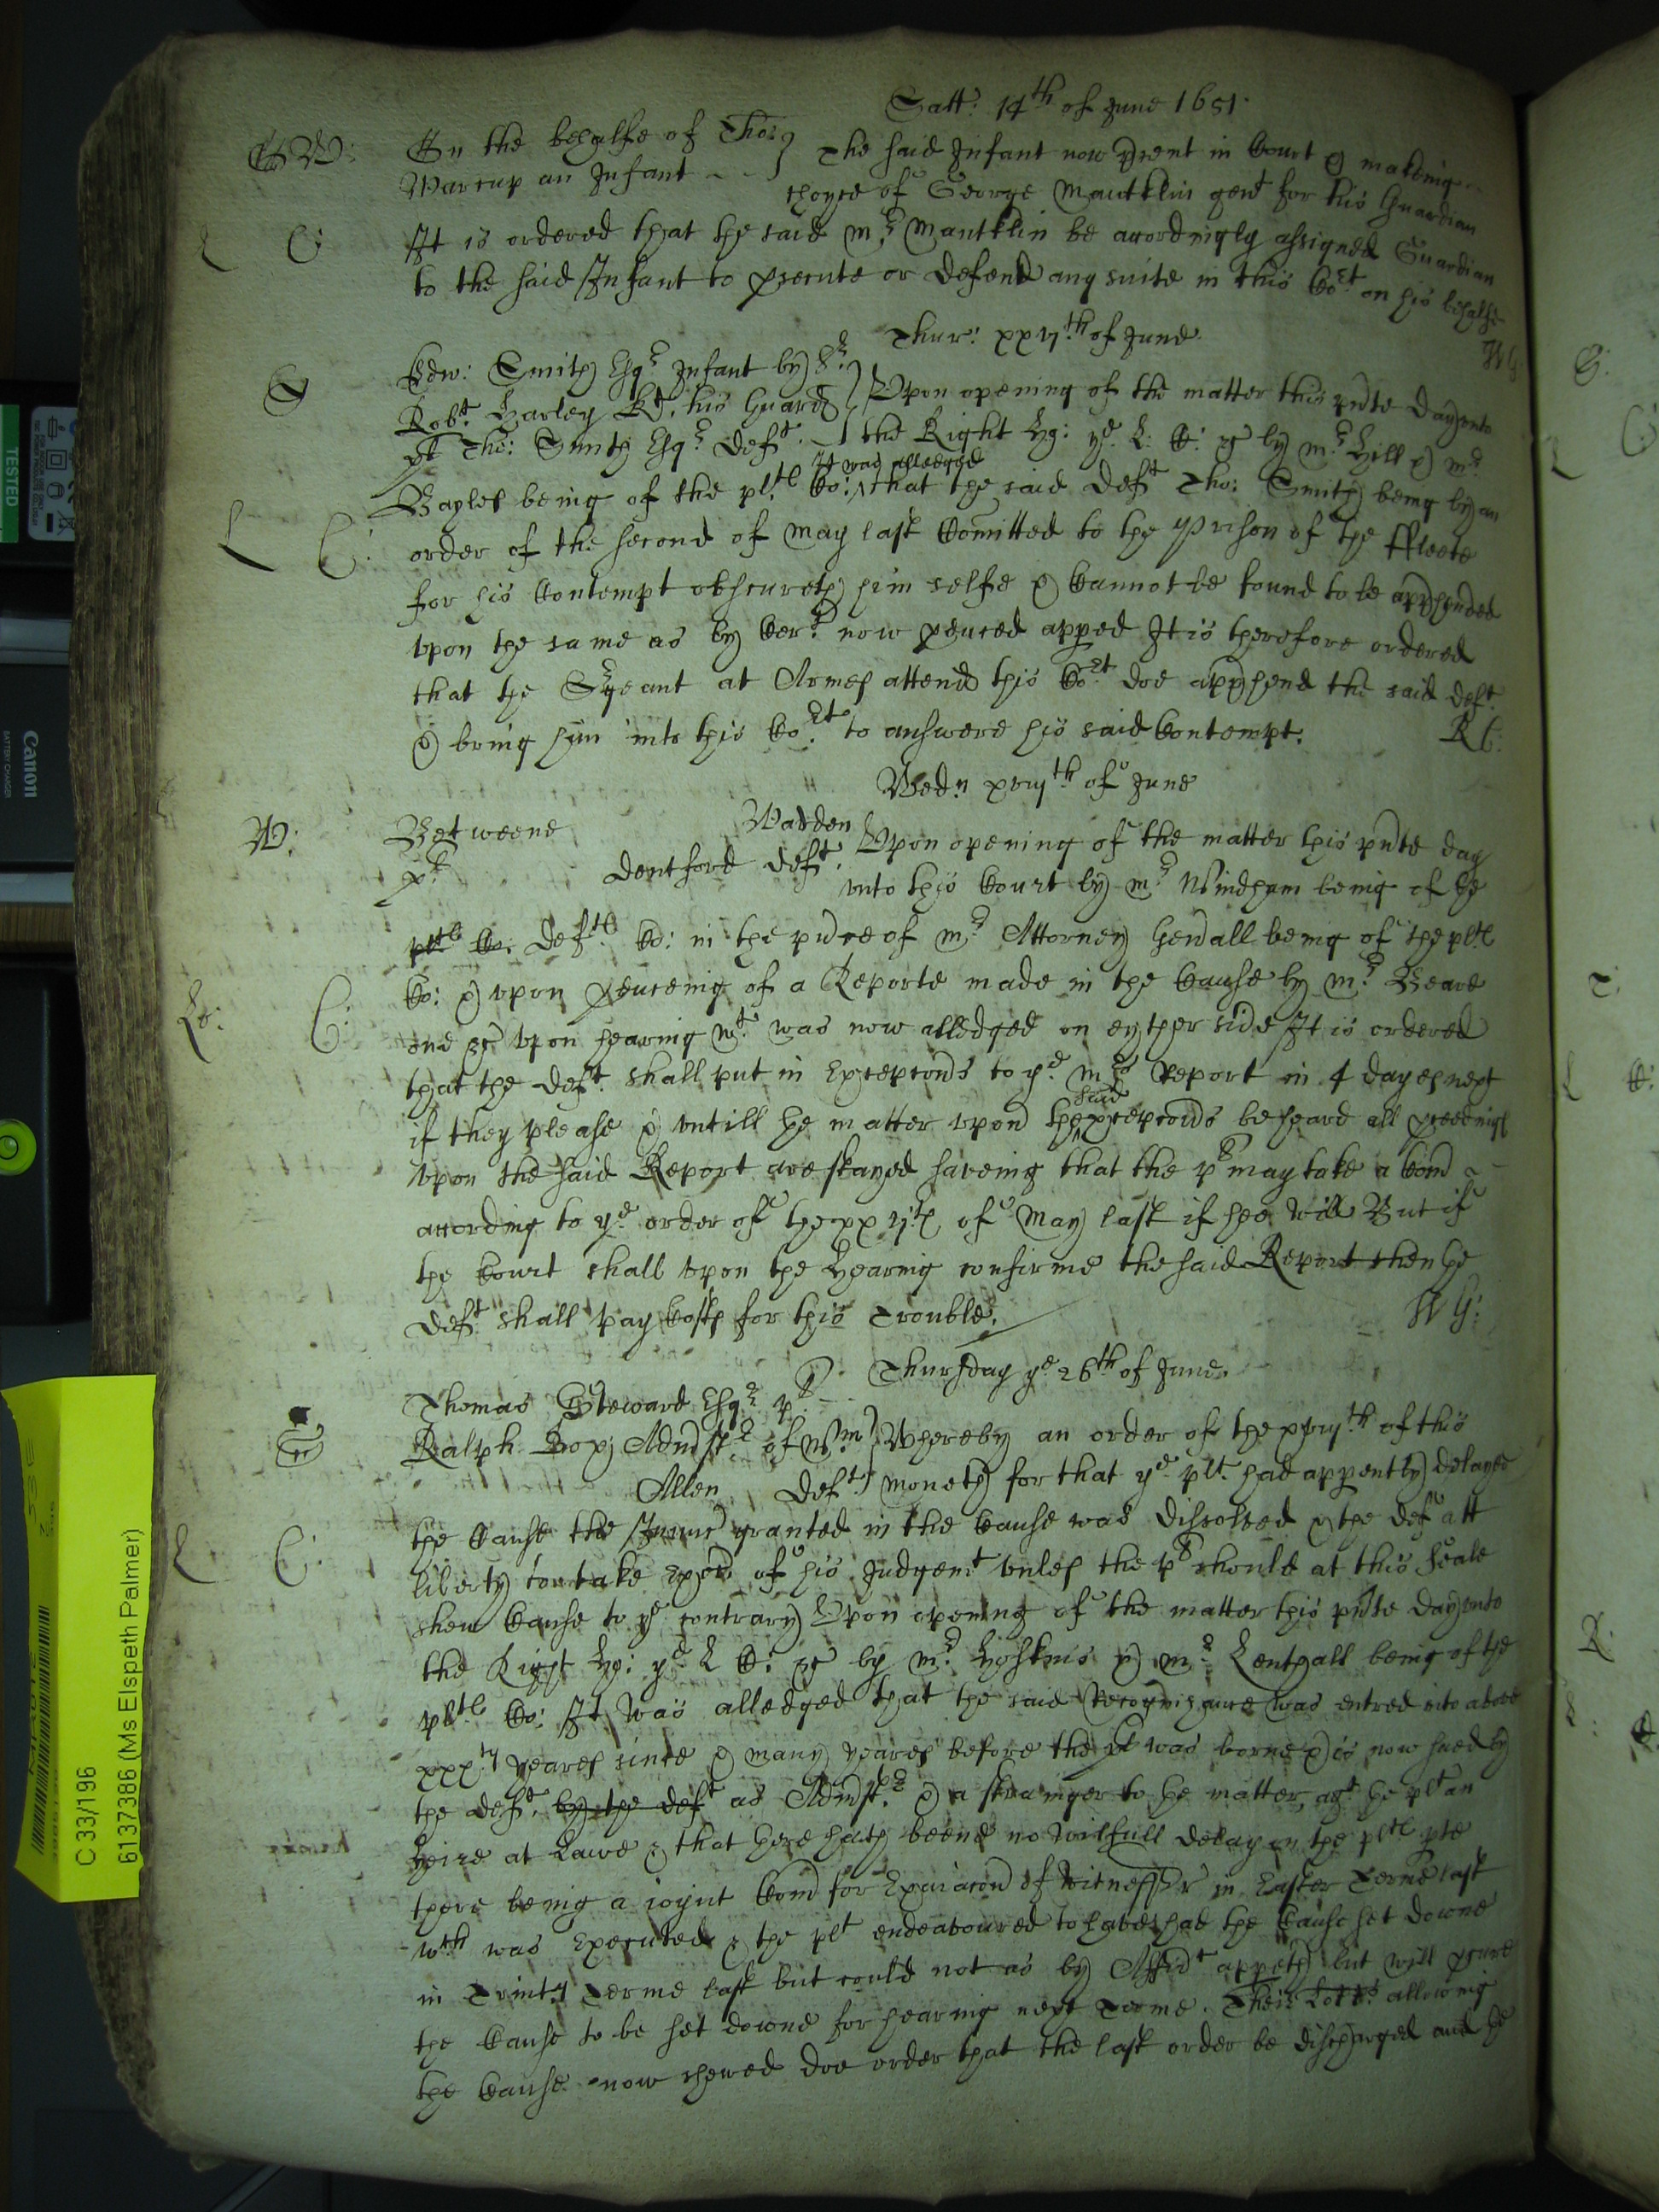 Satt: 14th of June 1651.
W:
On the behalfe of Tho:
Warcup an Infant
The said Infant now pñent in Court & makeing
choyce of George Mantklin gent for his Guardian
L C:
It is ordered that the said mr Mantklin be accordingly assigned Guardian
to the said Infant to psecute or defend any suite in this Cort on his behalfe
Thur: xxvith of June
S
Edw: Smith Esqr Infant by Sr
Robt Harley Kt. his Guard
plt Tho: Smith Esqr Deft.
Upon opening of the matter this pñte day unto
the Right Ho: ye L: C: &c by mr Hill & mr
It was alledged
Bayles being of the pltes Co: that the said Deft Tho: Smith being by an
L C:
order of the second of May last Comitted to the Prison of the ffleete
for his Contempt obscureth him selfe & Cannot be found to be appհended
upon the same as by Cert. now pduced apped It is therefore ordered
that the Sgeant at Armes attend this Cort doe apphend the said deft.
& bring him into this Cort to answere his said Contempt.
R C:
Wedn xviijth of June
W:
Betweene Warden
plt
Dentford Deft.
Upon opening of the matter this pñte day
unto this Court by mr Windham being of the
pltes Co. Deftes Co: in the pñce of mr Attorney Genall being of the pltes
Co: & upon pduceing of a Reporte made in the Cause by mr Beare
Lo: C:
one &c upon hearing wt was now alledged on eyther side It is ordered
that the Deft. shall put in Excepcons to ye mrs Report in 4 dayes next
said
if they please & untill the matter upon the excepcons be heard all pceedings
upon the said Report are stayed saveing that the plt may take a Com
according to ye order of the xxijth of May last if hee will But if
the Court shall upon the Hearing confirme the said Report then the
Deft shall pay Costs for this Trouble.
W G:
Thursday ye 26th of June
Thomas Steward Esqr plt.
Ralph Adm̃str of Wm
Allen Deft.
Whereby an order of the xviijth of this
moneth for that ye plt. had appently delayed
the Cause the Iniunc granted in the Cause was dissolved & the Def att
L C:
liberty to take Execõn of his Judgemt unles the plt should at this Seale
shew Cause to ye contrary Upon opening of the matter this pñte day unto
the Right Ho: ye L C: &c by mr Hoskins & mr Lenthall being of the
pltes Co: It was alledged that the said Recognizance was entred into above
xxxty yeares since & many yeares before the plt was borne & is now sued by
the Deft. by the deft as Adm̃str & a stranger to the matter, agt the plt an
Heire at Lawe & that there hath beene no wilfull delay on the pltes pte
there being a joynt Com for Examacon of witnesses in Easter Terme last
wch was Executed & the plt endeavoured to have had the Cause set downe
in Trinity Terme last but could not as by Affidt appeth but will pcure
the Cause to be set downe for hearing next Terme. Their Lopps allowing
the Cause now shewed doe order that the last order be discharged and the
TESTED
Canon
BATTERY CHARGER
C 33/196
6137386 (Ms Elspeth Palmer)